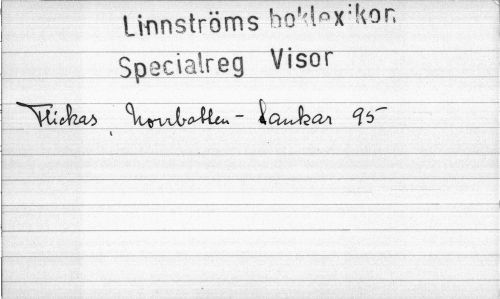 Linnströms boklexikon
Specialreg Visor
Flickas, Norrbotten - Tankar 95